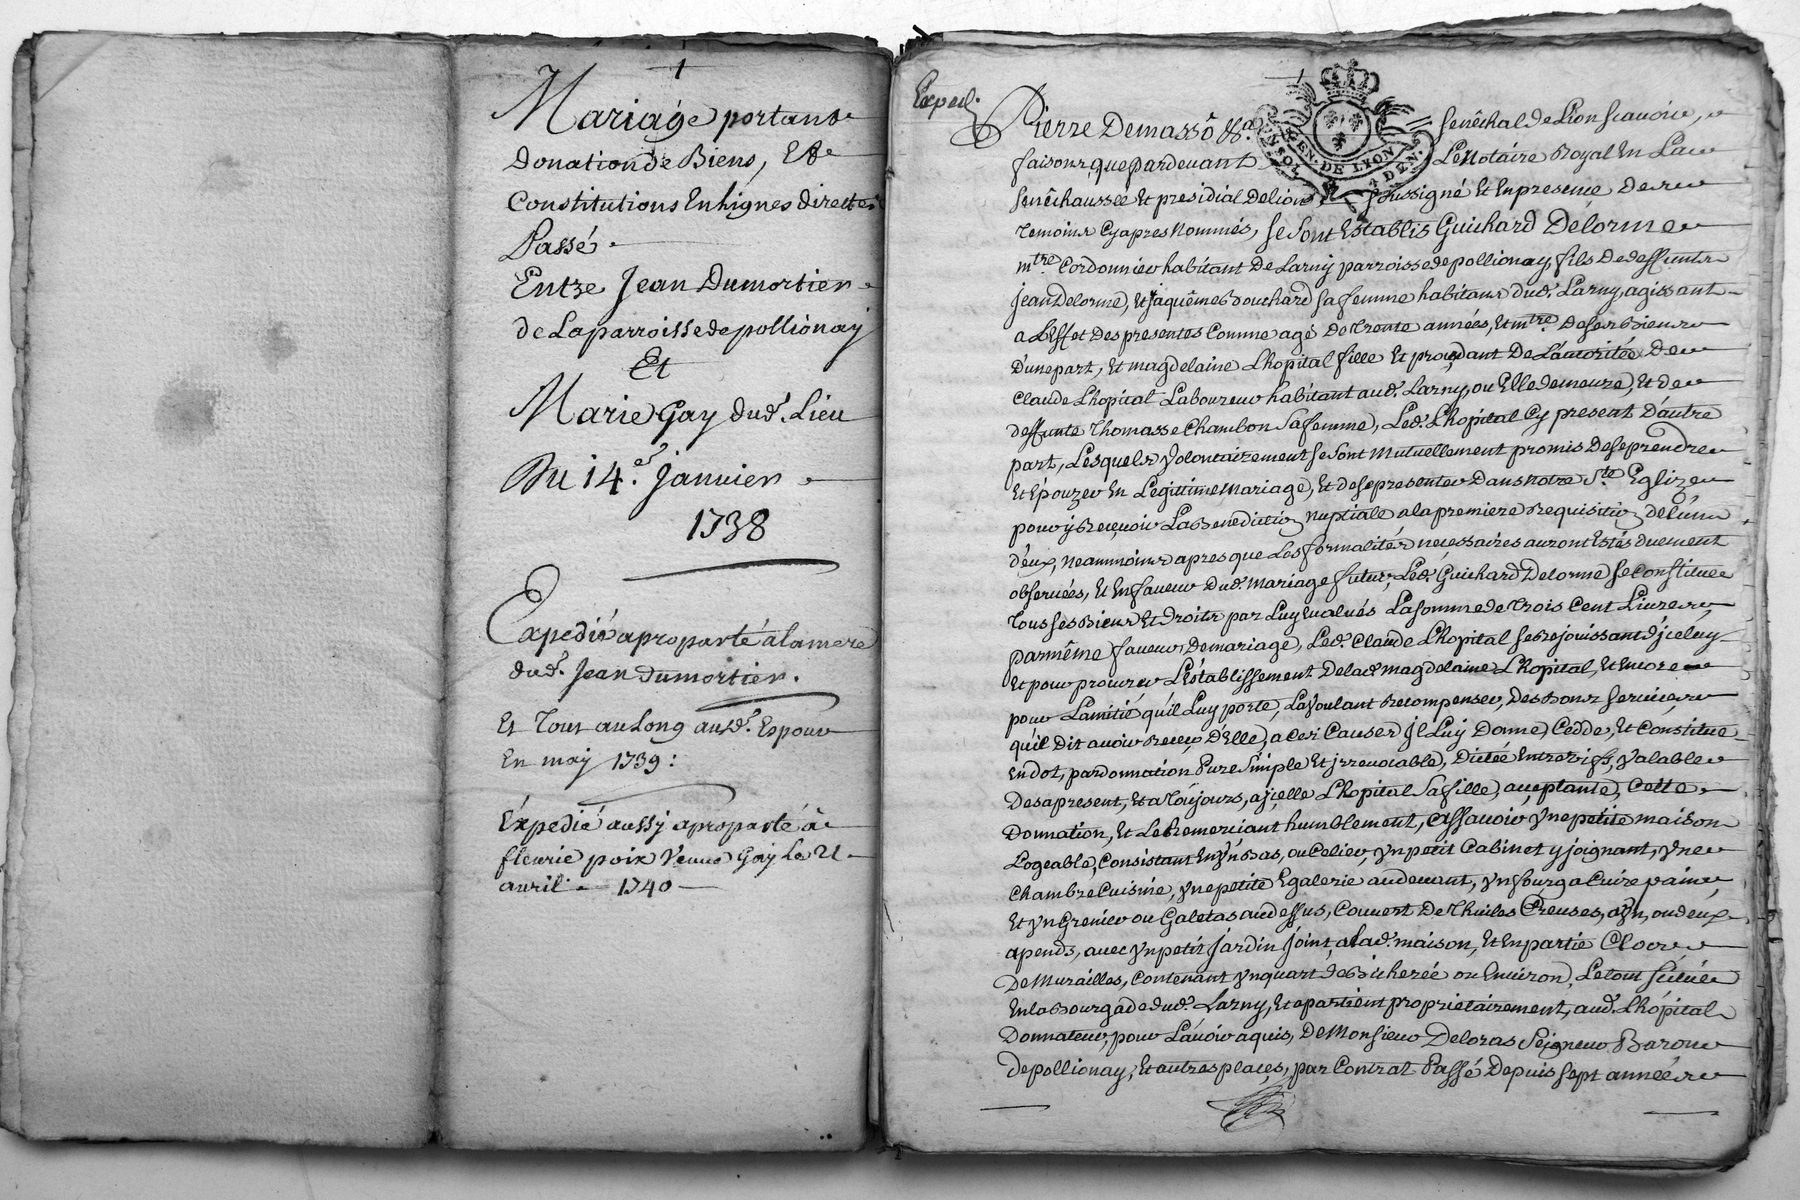 1
Mariage portant
donation de Biens, Et
Constitutions En Lignes directes
Passé
Entre Jean Dumortier
de La parroisse de pollionay
Et
Marie Gay dud.t Lieu
Du 14.e Janvier
1738
Expedié aproparté a la mere
dud.t Jean dumortier.
Et Tout au Long aud.t Espoux
En may 1739:
Expedié aussy aproparté â
fleurie poix Veuve Gay Le
avril 1740
1
Exped.
Pierre Demasso &c. senêchal de Lion scavoir,
faisons, que pardevant Le Notaire Royal En La
senêchaussée Et presidial de Lion soussigné Et En presence des
Temoins Cy apres Nommés, se sont Establis Guichard Delorme
m.tre Cordonnier habitant De Larny parroisse de pollionay, fils De deffunts
Jean Delorme, Et Jaquême Bouchard sa femme habitans dud.t Larny, agissant
a L'Effet Des presentes Comme agé De Trente années, Et m.tre De ses Biens
D'une part, Et magdelaine Lhopital fille Et procedant De L'autorité De
Claude Lhopital Laboureur habitant aud.t Larny, ou Elle demeure, Et de
deffunte Thomasse Chambon sa femme, Led.t Lhopital Cy present D'autre
part, Lesquels Volontairement se sont Mutuellement promis De se prendre
Et Epouzer En Legitime Mariage, Et de se presenter Dans Notre S.te Eglize
pour y Reçevoir La Benediction Nuptiale a la premiere Requisition de L'un
d'eux, neammoins apres que Les formalités necessaires auront Estés duement
observées, Et En faveur Dud.t Mariage futur, Led.t Guichard Delorme se Constitue
Tous ses Biens Et Droits par Luy Evalués La somme de Trois Cent Livres,
par même faveur De mariage, Led.t Claude Lhopital se Rejouissant d'iceluy
Et pour procurer L'Etablissement De lad.e magdelaine Lhopital, Et Encore
pour L'amitié qu'il Luy porte, La Voulant Recompenser, Des Bons services
qu'il Dit avoir Reçeu d'Elle, a Ces Causes Il Luy Donne, Cedde, Et Constitue
En dot, par donnation Pure simple Et irrevocable, Dictée Entre vifs, Valable
Des a present, Et a Toujours, a ycelle Lhopital sa fille, acceptante, Cette
Donnation, Et Le Remerciant humblement, assavoir Yne petite maison
Logeable, Consistant En Yn Bas, ou Celier, Yn petit Cabinet y joignant, Yne
Chambre Cuisine, Yne petite Egalerie au devant, Yn four a Cuire pain
Et Yn Grenier ou Galetas au dessus, Couvert De Thuiles Creuses, a Yn, ou deux
apends, avec Yn petit Jardin Joint, a lad.e maison, Et En partie Clos
De Murailles, Contenant Yn quart de Bicherée ou Environ, Le tout situé
En la Bourgade dud.t Larny, Et apartient proprietairement, aud.t Lhopital
Donnateur, pour L'avoir aquis, De Monsieur Deloras Seigneur Baron
de pollionay, Et autres places, par Contrat Passé Depuis sept années